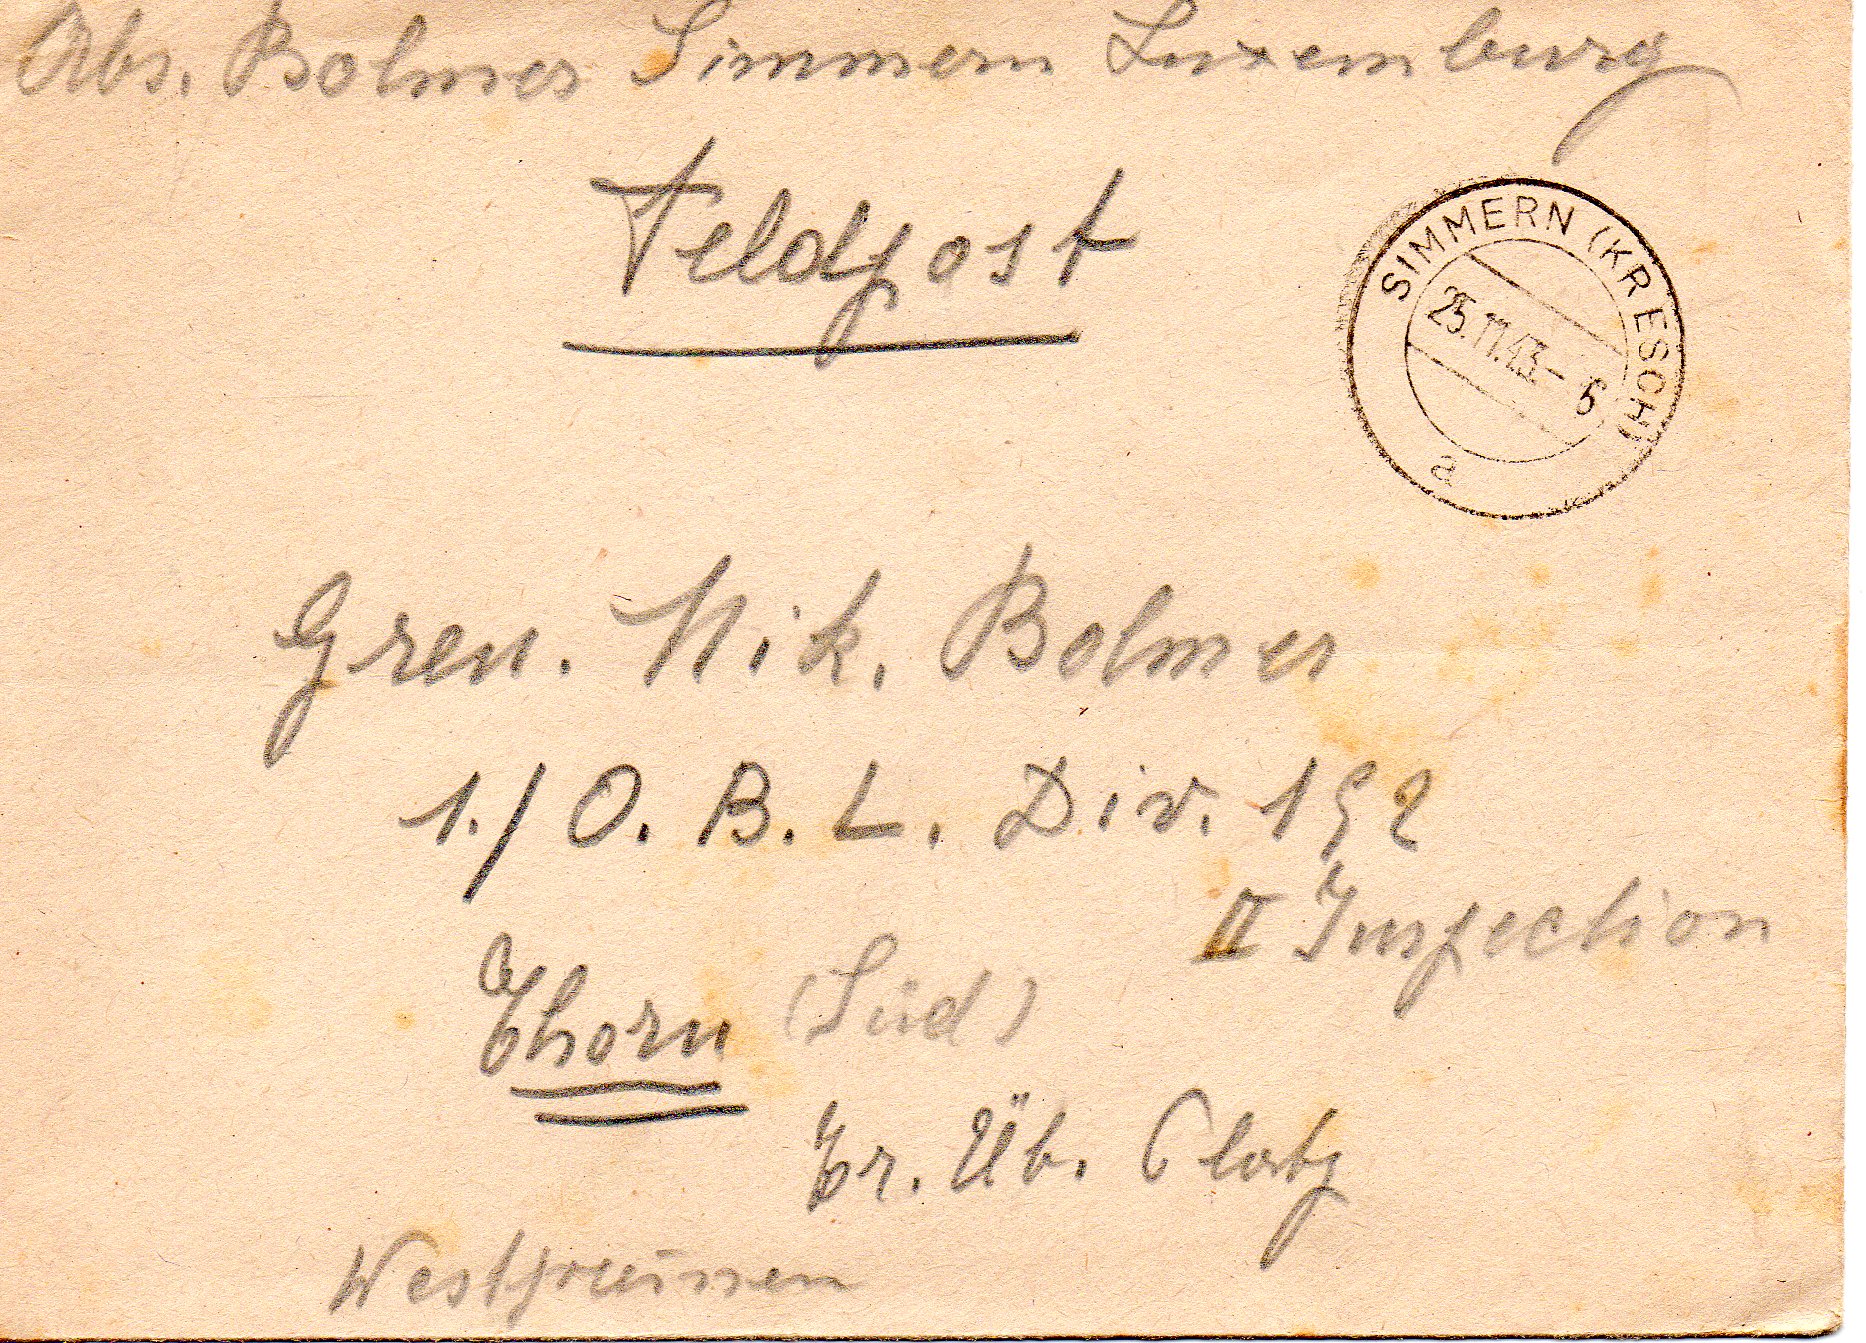 Abs. Bolmer Simmern Luxemburg
Feldpost
SIMMERN (KR ESCH)
25.11.43.- 6
a
Gren. Nik. Bolmer
1./ O. B. L. Div. 152
II Inspection
Thorn (Süd)
Tr. Üb. Platz
Westpreussen